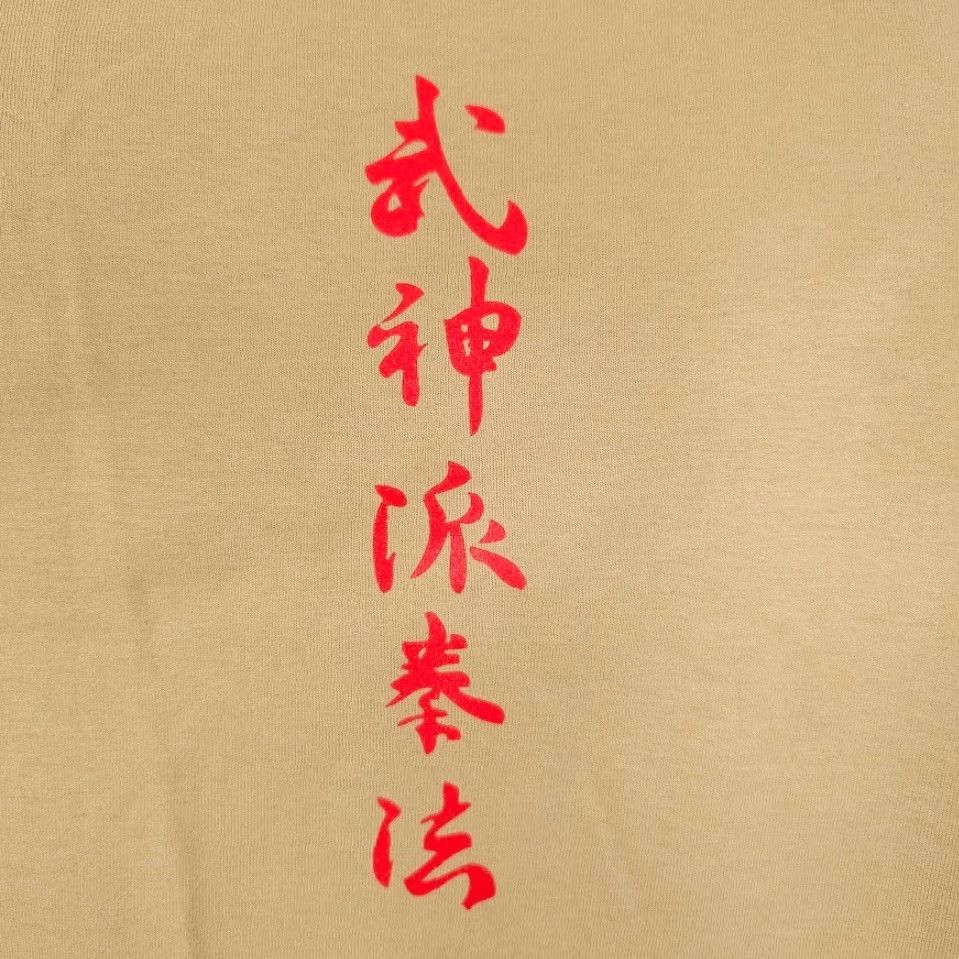 武神派拳法